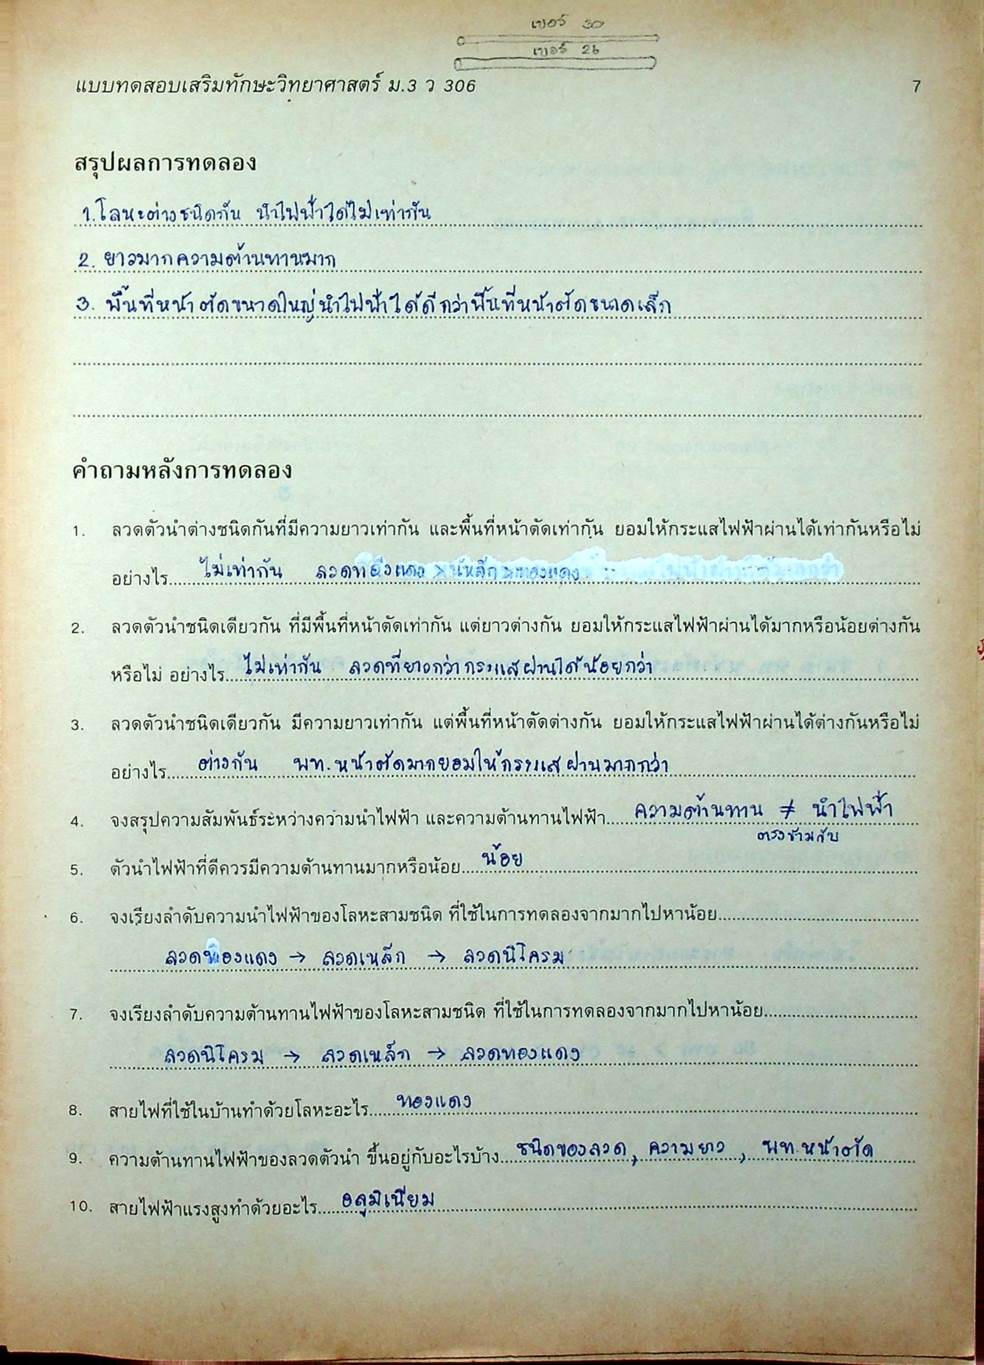 เบอร์ 30
เบอร์ 26
แบบทดสอบเสริมทักษะวิทยาศาสตร์ ม.3 ว 306
7
สรุปผลการทดลอง
1. โลหะต่างชนิดกัน นำไฟฟ้าได้ไม่เท่ากัน
2. ยาวมากความต้านทานมาก
3. พื้นที่หน้าตัดขนาดใหญ่นำไฟฟ้าได้ดีกว่าพื้นที่หน้าตัดขนาดเล็ก
คำถามหลังการทดลอง
1. ลวดตัวนำต่างชนิดกันที่มีความยาวเท่ากัน และพื้นที่หน้าตัดเท่ากัน ยอมให้กระแสไฟฟ้าผ่านได้เท่ากันหรือไม่
อย่างไร ไม่เท่ากัน
2. ลวดตัวนำชนิดเดียวกัน ที่มีพื้นที่หน้าตัดเท่ากัน แต่ยาวต่างกัน ยอมให้กระแสไฟฟ้าผ่านได้มากหรือน้อยต่างกัน
หรือไม่ อย่างไร ไม่เท่ากัน ลวดที่ยาวกว่ากระแสผ่านได้น้อยกว่า
3. ลวดตัวนำชนิดเดียวกัน มีความยาวเท่ากัน แต่พื้นที่หน้าตัดต่างกัน ยอมให้กระแสไฟฟ้าผ่านได้ต่างกันหรือไม่
อย่างไร ต่างกัน พท.หน้าตัดมากยอมให้กระแสผ่านมากกว่า
4. จงสรุปความสัมพันธ์ระหว่างความนำไฟฟ้า และความต้านทานไฟฟ้า ความต้านทาน ≠ นำไฟฟ้า
ตรงข้ามกับ
5. ตัวนำไฟฟ้าที่ดีควรมีความต้านทานมากหรือน้อย น้อย
6. จงเรียงลำดับความนำไฟฟ้าของโลหะสามชนิด ที่ใช้ในการทดลองจากมากไปหาน้อย
ลวดทองแดง → ลวดเหล็ก → ลวดนิโครม
7. จงเรียงลำดับความต้านทานไฟฟ้าของโลหะสามชนิด ที่ใช้ในการทดลองจากมากไปหาน้อย
ลวดนิโครม → ลวดเหล็ก → ลวดทองแดง
8. สายไฟที่ใช้ในบ้านทำด้วยโลหะอะไร ทองแดง
9. ความต้านทานไฟฟ้าของลวดตัวนำ ขึ้นอยู่กับอะไรบ้าง ชนิดของลวด, ความยาว, พท.หน้าตัด
10. สายไฟฟ้าแรงสูงทำด้วยอะไร อลูมิเนียม